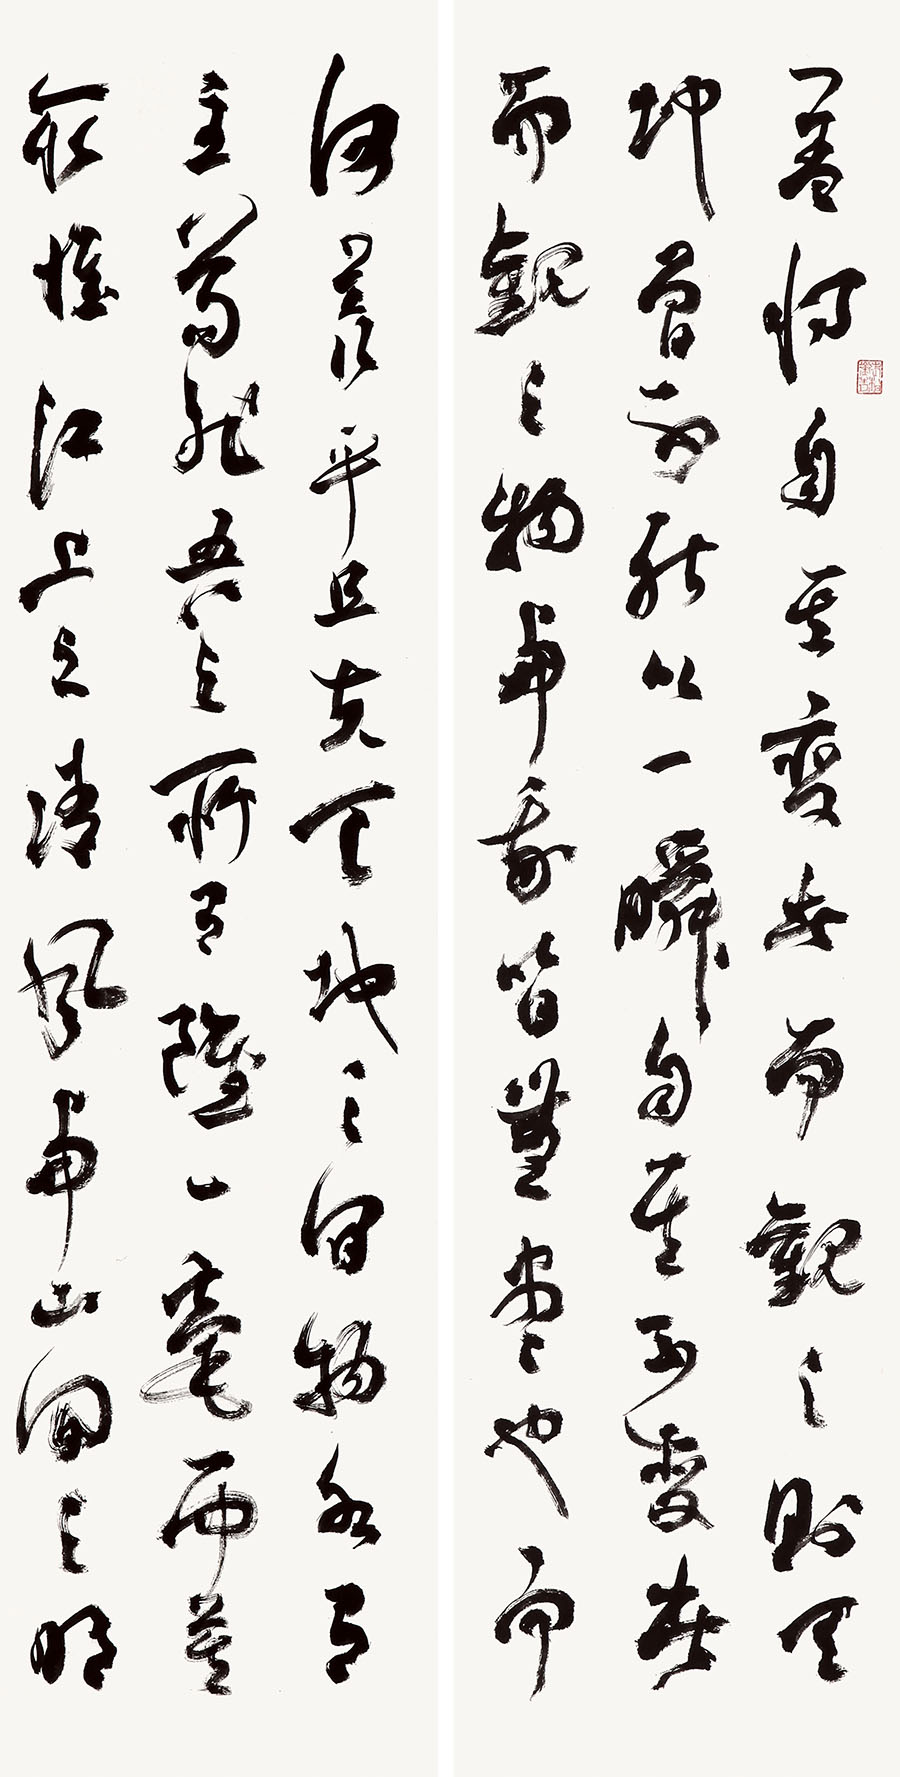 蓋將自其變者而觀之則天
地曾不能以一瞬自其不變者
而觀之物與我皆無盡也而
何羨乎且夫天地之間物各有
主苟非吾之所有雖一毫而莫
取惟江上之清風與山間之明